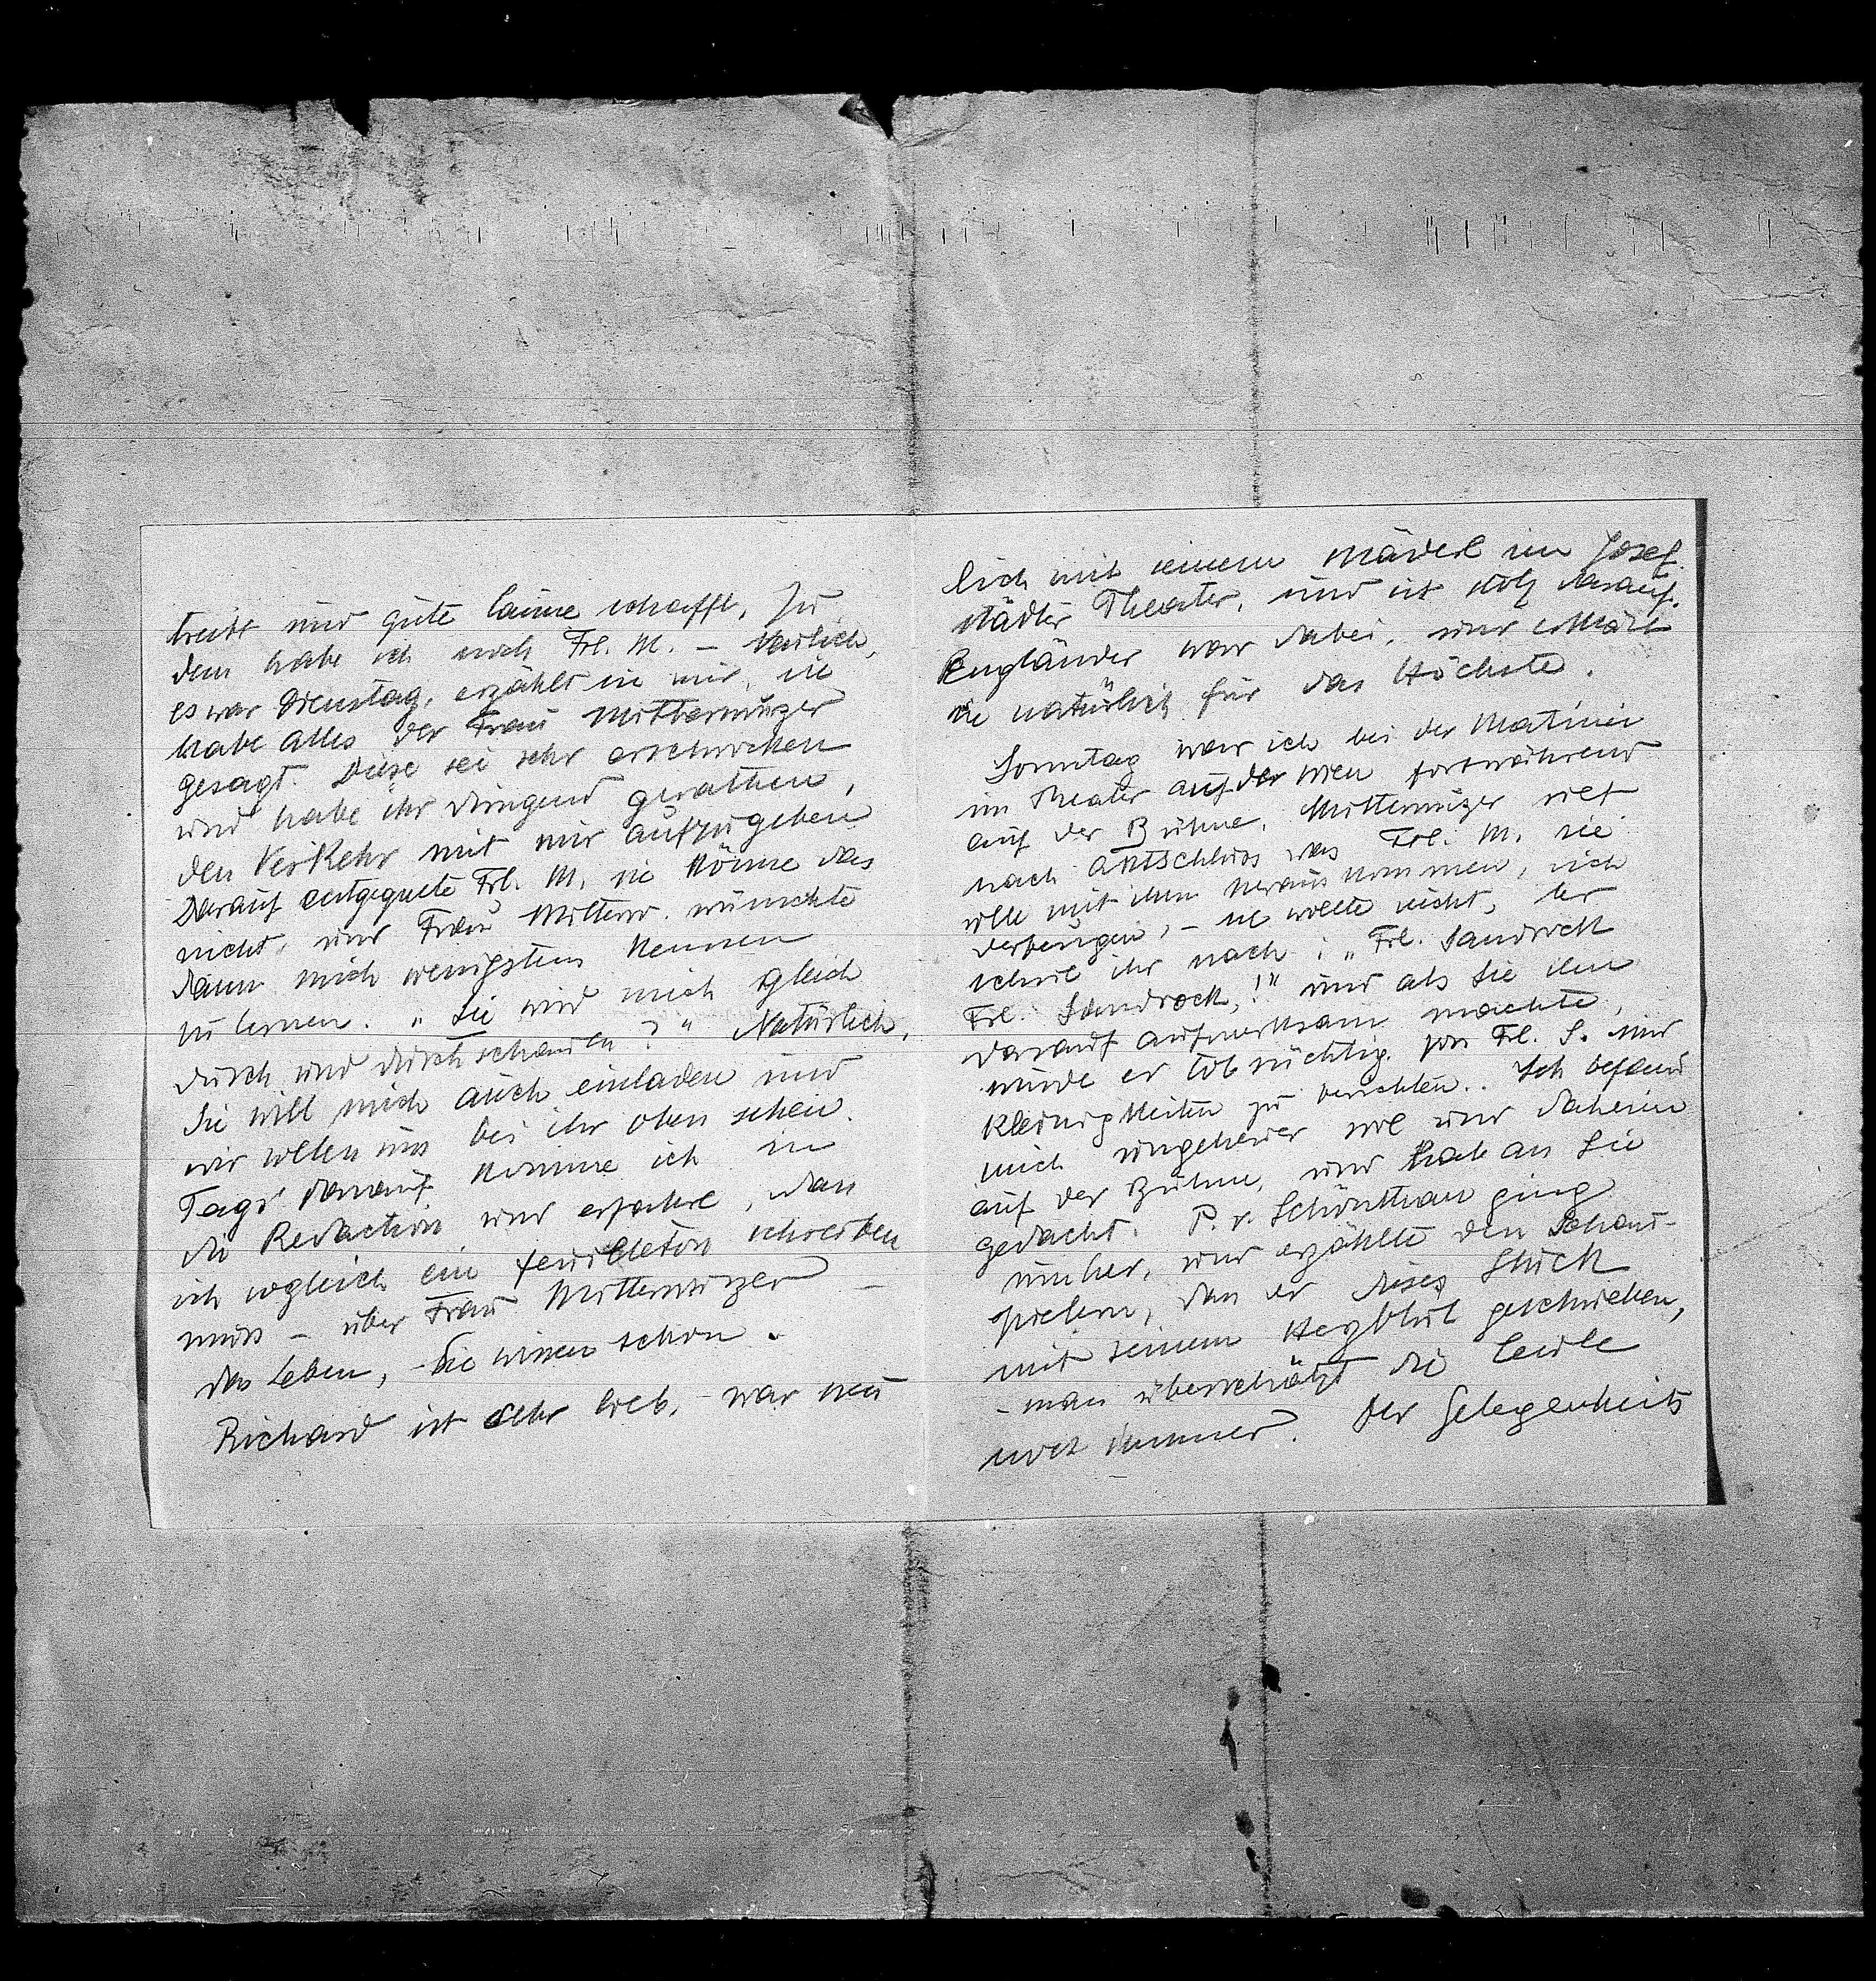 treibt und gute Laune schafft. Zu
dem habe ich noch Frl. M. – Neulich,
es war Dienstag, erzählt sie mir, sie
habe Alles der Frau Mitterwurzer
gesagt. Diese sei sehr erschrocken
und habe ihr dringend gerathen,
den Verkehr mit mir aufzugeben
Darauf entgegnete Frl. M. sie könne das
nicht, und Frau Mitterw. wünschte
dann mich wenigstens kennen
zu lernen. „Sie wird mich gleich
durch und durch schauen?“ Natürlich,
Sie will mich auch einladen und
wir sollen uns bei ihr oben sehen.
Tags darauf komme ich in
die Redaction und erfahre, dass
ich sogleich ein Feuilleton schreiben
muss – über Frau Mitterwurzer –
das Leben, – Sie wissen schon.
Richard ist sehr lieb, – war neu
lich mit seinem Mäderl im Josef
städter Theater, und ist stolz darauf.
Engländer war dabei, und erklärt
sie natürlich für das Höchste.
Sonntag war ich bei der Matinée
im Theater auf der Wien fortwährend
auf der Bühne. Mitterwurzer rief
nach Aktschluss was Frl. M. sie
solle mit ihm herauskommen, sich
verbeugen, – sie wollte nicht, er
schrie ihr nach: „Frl. Sandrock
Frl. Sandrock,!“ und als Sie ihn
darauf aufmerksam machte,
wurde er tobsüchtig. von Frl. S. nur
Kleinigkeiten zu berichten.. Ich befand
mich ungeheuer wol und daheim
auf der Bühne, und hab an Sie
gedacht. P. v. Schönthan ging
umher, und erzählte den Schau-
spielern, dass er dieses Stück
mit seinem Herzblut geschrieben,
– man überschätzt die Leute
noch immer. Der Gelegenheits